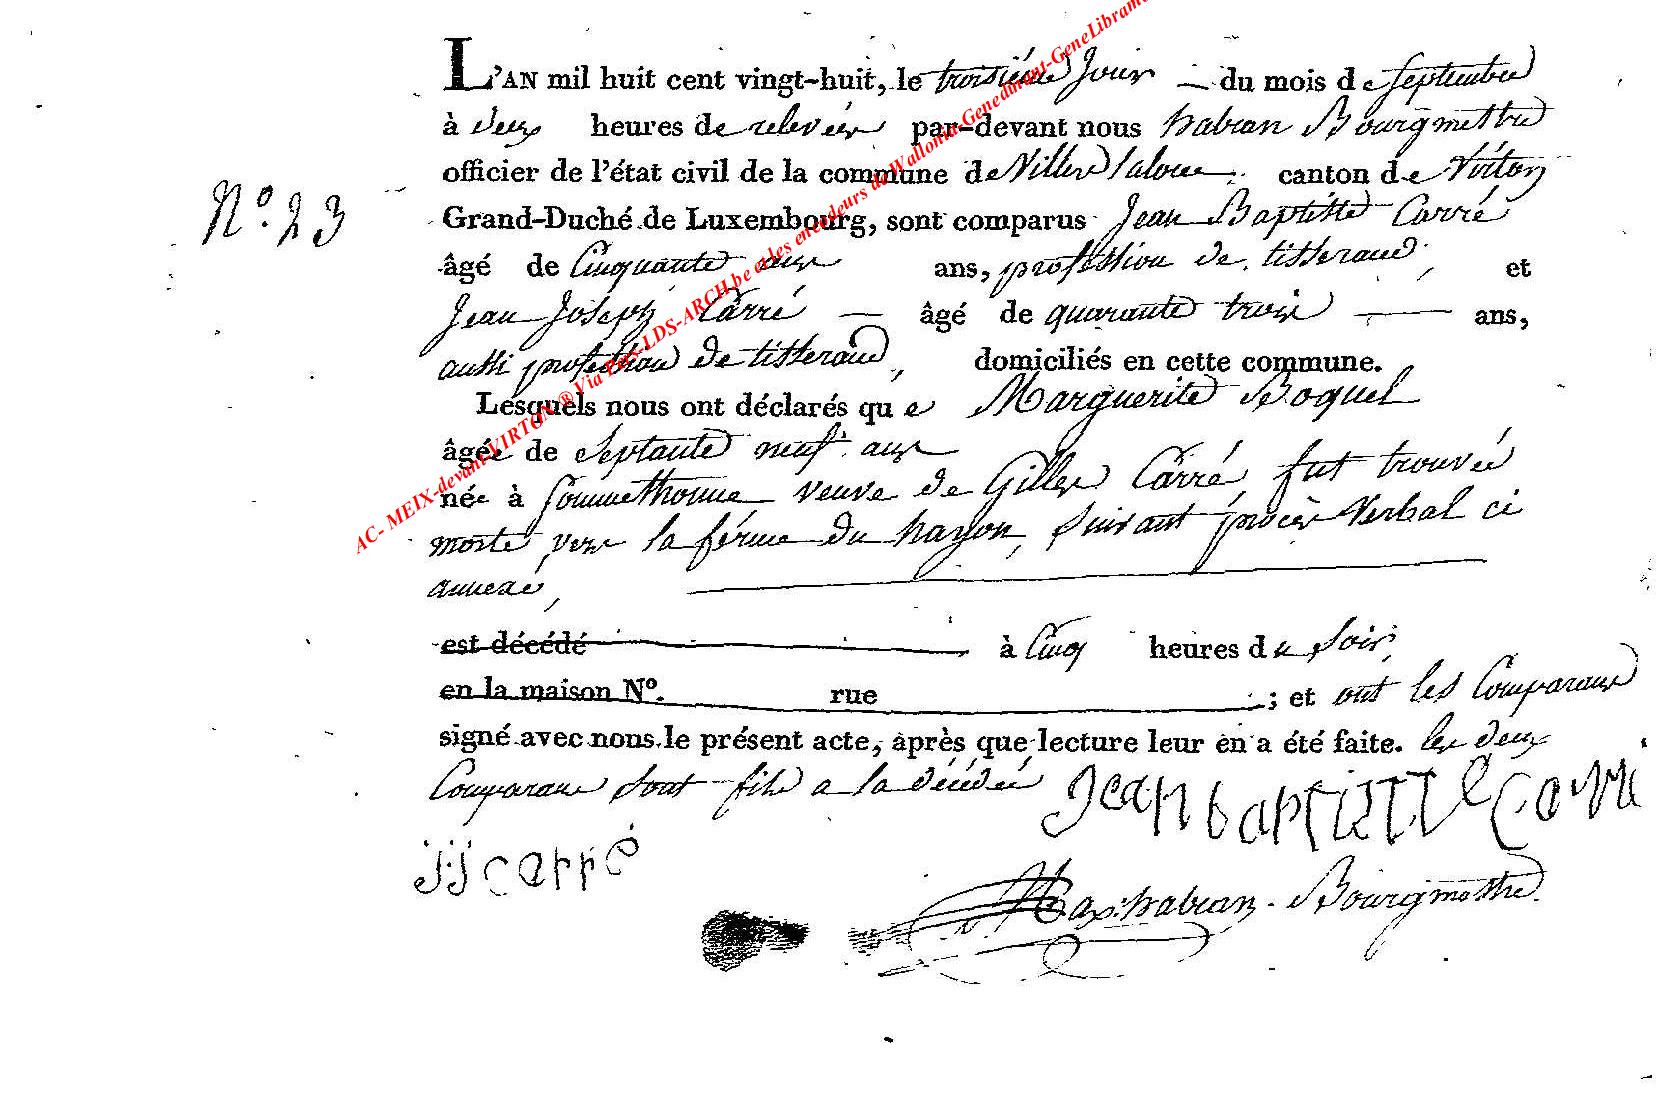 L'AN mil huit cent vingt-huit, le troisiéme Jour du mois de Septembre
à deux heures de relevéer par-devant nous habran Bourgmettre
officier de l'état civil de la commune de Viller laloue canton de Virton
N.º 23
Grand-Duché de Luxembourg, sont comparus Jean Baptiste Carré
âgé de Cinquante ans, profession de tisserand, et
Jean Joseph Carré — âgé de quarante trois — ans,
aussi profession de tisserand, domiciliés en cette commune.
Lesquels nous ont déclarés que Marguerite Boquel
âgée de Septante neuf ans
née à Sommethonne veuve de Giller Carré fut trouvée
morte vers la férme du hayon, Suivant procèr Verbal ci
annexé,
est décédé à Cinq heures du Soir,
en la maison Nº. rue ; et ont les Comparans
signé avec nous le présent acte, après que lecture leur en a été faite. les deux
Comparans Sont fils a la décédée
Jean baptiste Carré
jj carré
Max: habran - Bourgmettre
AC- MEIX-devant-VIRTON ® Via Pers-LDS-ARCH.be et les encodeurs de Wallonia-Genedinant-GeneLibramo